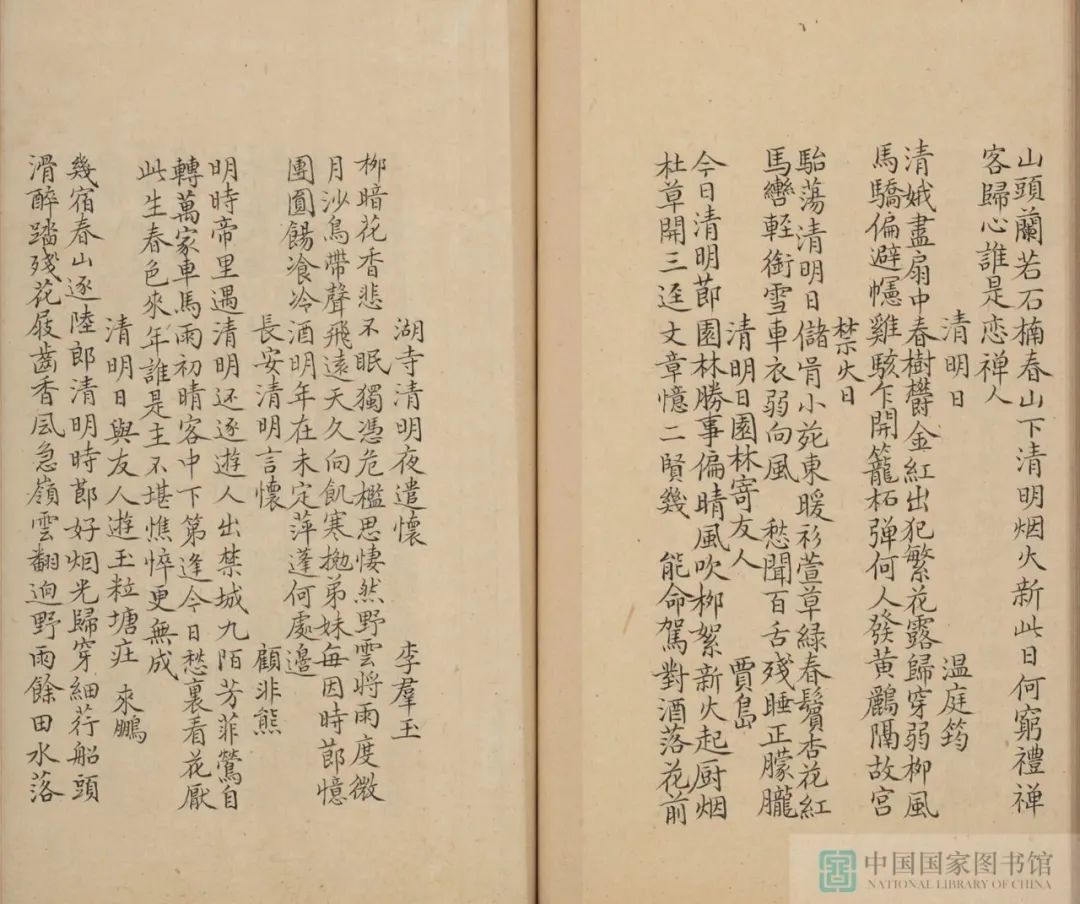 山頭蘭若石楠春山下清明烟火新此日何窮禮禅
客歸心誰是恋禅人
清明日 温庭筠
清娥盡扇中春樹欝金紅出犯繁花露歸穿弱柳風
馬驕偏避幰雞駭乍開籠柘弹何人發黄鸝隔故宫
禁火日
駘蕩清明日儲胥小苑東暖衫萱草緑春鬢杏花紅
馬轡輕銜雪車衣弱向風 愁聞百舌残睡正朦朧
清明日園林寄友人 賈島
今日清明莭園林勝事偏晴風吹柳絮新火起厨烟
杜草開三逕文章憶二賢幾 能命駕對酒落花前
湖寺清明夜遣懷 李羣玉
柳暗花香悲不眠獨憑危檻思悽然野雲將雨度微
月沙鳥帶聲飛遠天久向飢寒抛弟妹每因時莭憶
團圓餳飡冷酒明年在未定萍蓬何處邉
長安清明言懷 顧非熊
明時帝里遇清明还逐遊人出禁城九陌芳菲鶯自
轉萬家車馬雨初晴客中下第逢今日愁裏看花厭
此生春色來年誰是主不堪憔悴更無成
清明日與友人遊玉粒塘庄 來鵬
幾宿春山逐陸郎清明時莭好烟光歸穿細荇船頭
滑醉踏殘花屐齒香風急嶺雲翻迥野雨餘田水落
中国国家图书馆
NATIONAL LIBRARY OF CHINA